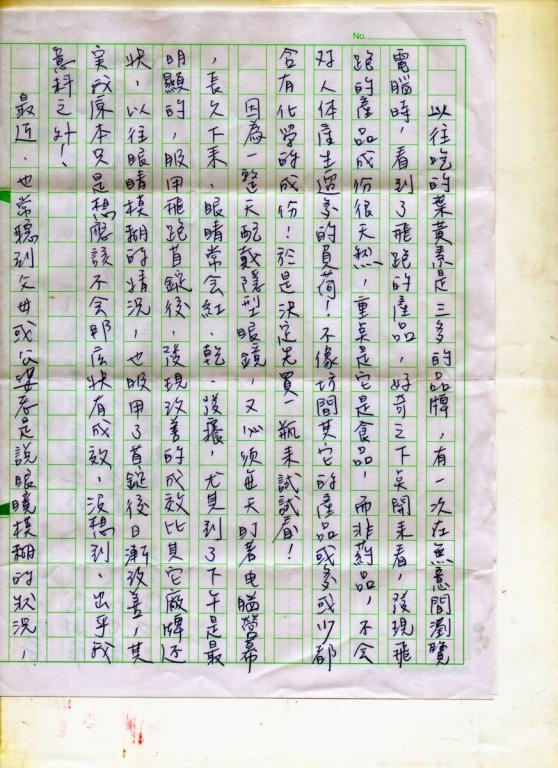 No.
以往吃的葉黃素是三多的品牌，有一次在無意間瀏覽
電腦時，看到了飛跑的產品，好奇之下点開來看，發現飛
跑的產品成份很天然，重点是它是食品，而非葯品，不会
对人体產生過多的負荷！不像坊間其它的產品或多或少都
含有化学的成份！於是決定先買一瓶來試試看！
因為一整天配戴隱型眼鏡，又必須每天盯著电腦螢幕
，長久下來，眼睛常会紅、乾、發癢，尤其到了下午是最
明顯的，服用飛跑首錠後，發現改善的成效比其它廠牌还
快，以往眼睛模糊的情況，也服用了首錠後日漸改善，其
实我原本只是想應該不会那庅快有成效，沒想到，出乎我
意料之外！
最近，也常聽到父母或公婆老是說眼睛模糊的狀況，